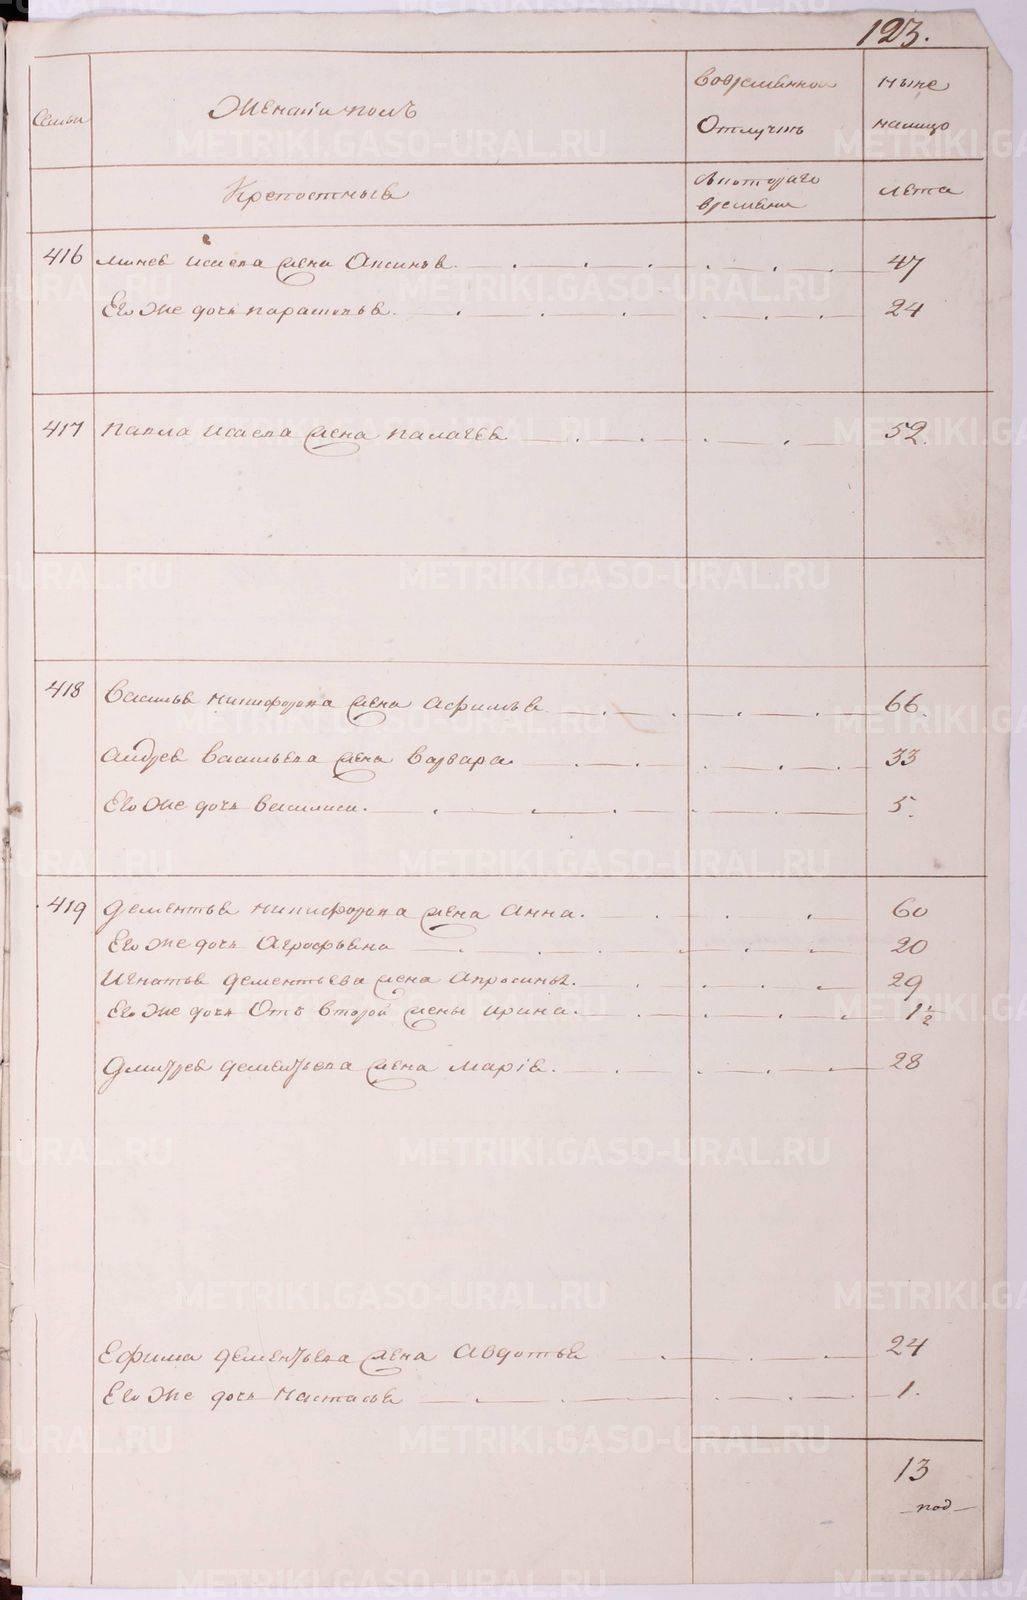 123.
Семьи
Женский полъ
Во временной
Отлучкѣ
ныне
налицо
Крепостныя
Скотораго
времени
лета
416 Минея Исаева жена Аксинья 47
Его же дочь парасковья 24
417 Павла Исаева жена палагея 52
418 Василья Никифорова жена Афимья 66
Андрея Васильева жена Варвара 33
Его же дочь Василиса 5
419 Дементья Никифорова жена Анна 60
Его же дочь Агрофѣна 20
Игнатья Дементьева жена Апросинья 29
Его же дочь Отъ второй жены ирина 1 1/2
Дмитрея Дементьева жена Марiя 28
Ефима Дементьева жена Авдотья 24
Его же дочь Настасья 1
13
под
METRIKI.GASO-URAL.RU